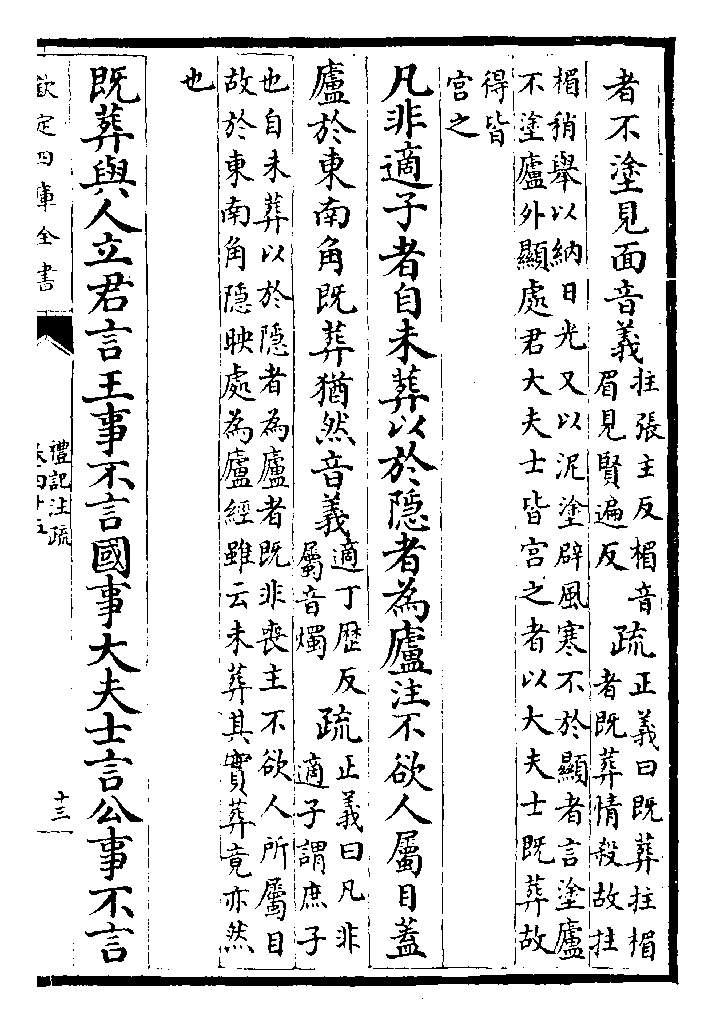 者不塗見面音義拄張主反楣音
眉見賢遍反
疏正義曰既葬拄楣
者既葬情殺故拄
楣稍舉以納日光又以泥塗辟風寒不於顯者言塗廬
不塗廬外顯處君大夫士皆宫之者以大夫士既葬故
得皆
宫之
凡非適子者自未葬以於隱者為廬注不欲人屬目蓋
廬於東南角既葬猶然音義適丁歴反
屬音燭
疏正義曰凡非
適子謂庶子
也自未葬以於隱者為廬者既非喪主不欲人所屬目
故於東南角隱映處為廬經雖云未葬其實葬竟亦然
也
既葬與人立君言王事不言國事大夫士言公事不言
欽定四庫全書
禮記注疏
卷四十五
十三